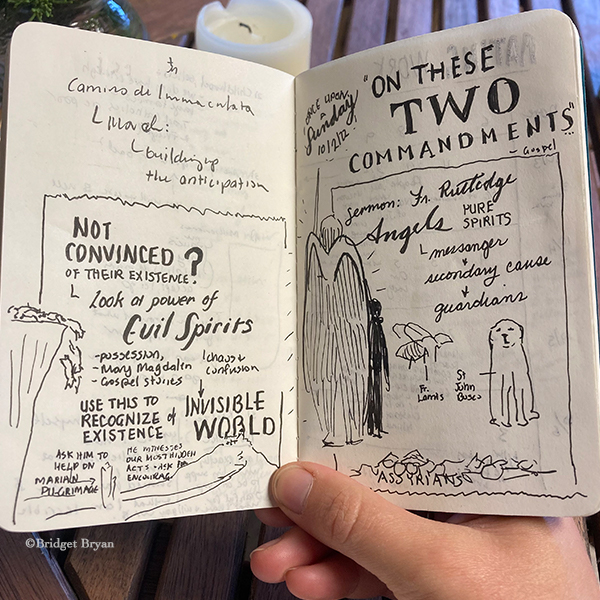 Camino de Immaculata
building up
the anticipation
NOT
CONVINCED
OF THEIR EXISTENCE?
Look at power of
Evil Spirits
-possession,
-Mary Magdalen
-Gospel stories
chaos &
confusion
USE THIS TO
RECOGNIZE
EXISTENCE
of
INVISIBLE
WORLD
ASK HIM TO
HELP ON
MARIAN
PILGRIMAGE
HE WITNESSES
OUR MOST HIDDEN
ACTS - ASK
ENCOURAG
ONCE UPON
a
Sunday
10/2/22
"ON THESE
TWO
COMMANDMENTS"
- Gospel
Sermon: Fr. Rutledge
Angels
PURE
SPIRITS
messanger
secondary cause
guardians
Fr.
St
John
Bosco
ASSYRIANS
©Bridget Bryan